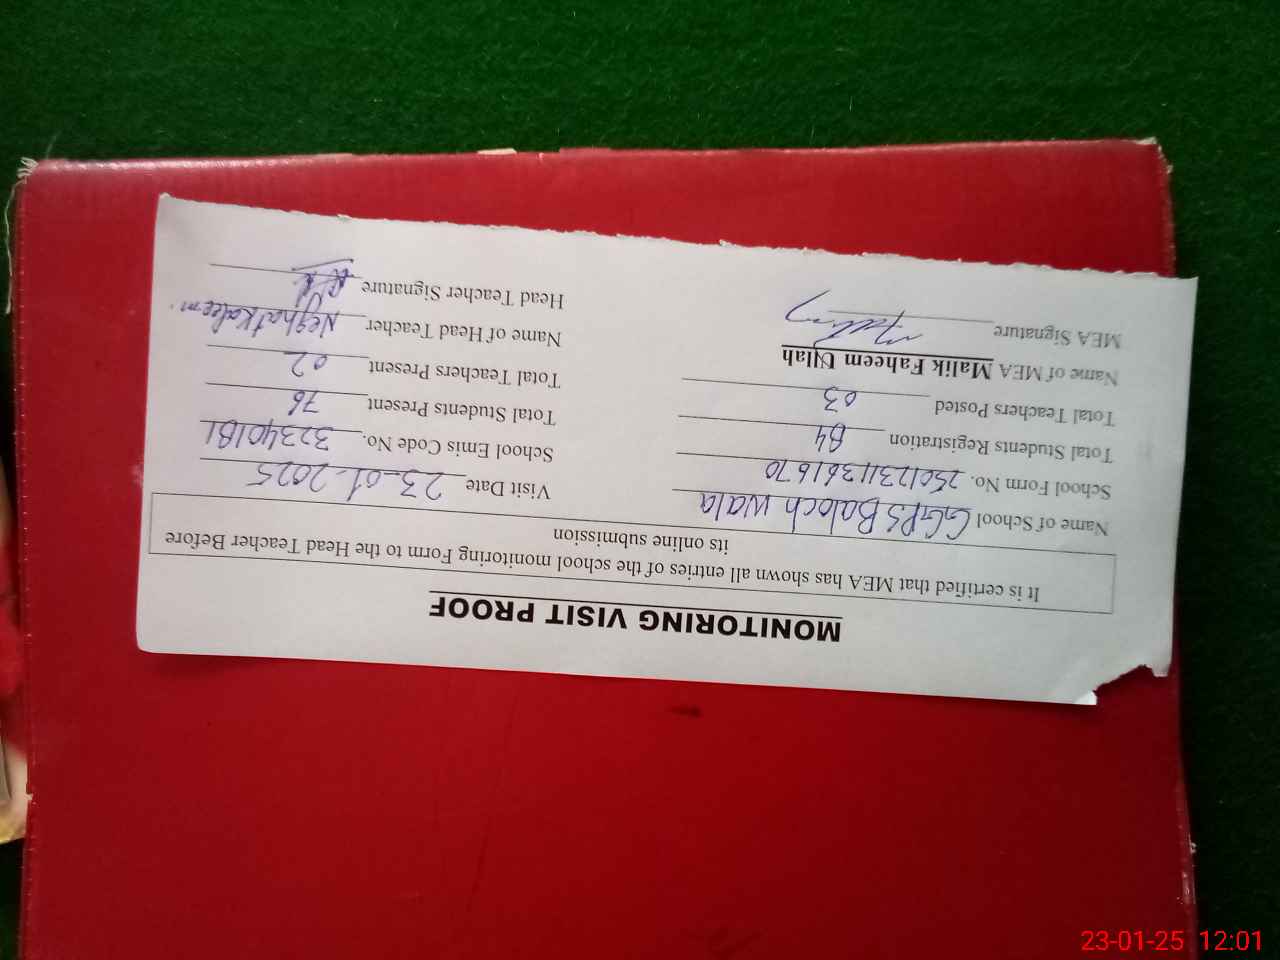 MONITORING VISIT PROOF
It is certified that MEA has shown all entries of the school monitoring Form to the Head Teacher Before
its online submission
Name of School GGPS Baloch wala Visit Date 23-01-2025
School Form No. 2501231361670 School Emis Code No. 32340181
Total Students Registration 84 Total Students Present 76
Total Teachers Posted 03 Total Teachers Present 02
Name of MEA Malik Faheem Ullah Name of Head Teacher Neghat Kaleem
MEA Signature Head Teacher Signature
23-01-25 12:01